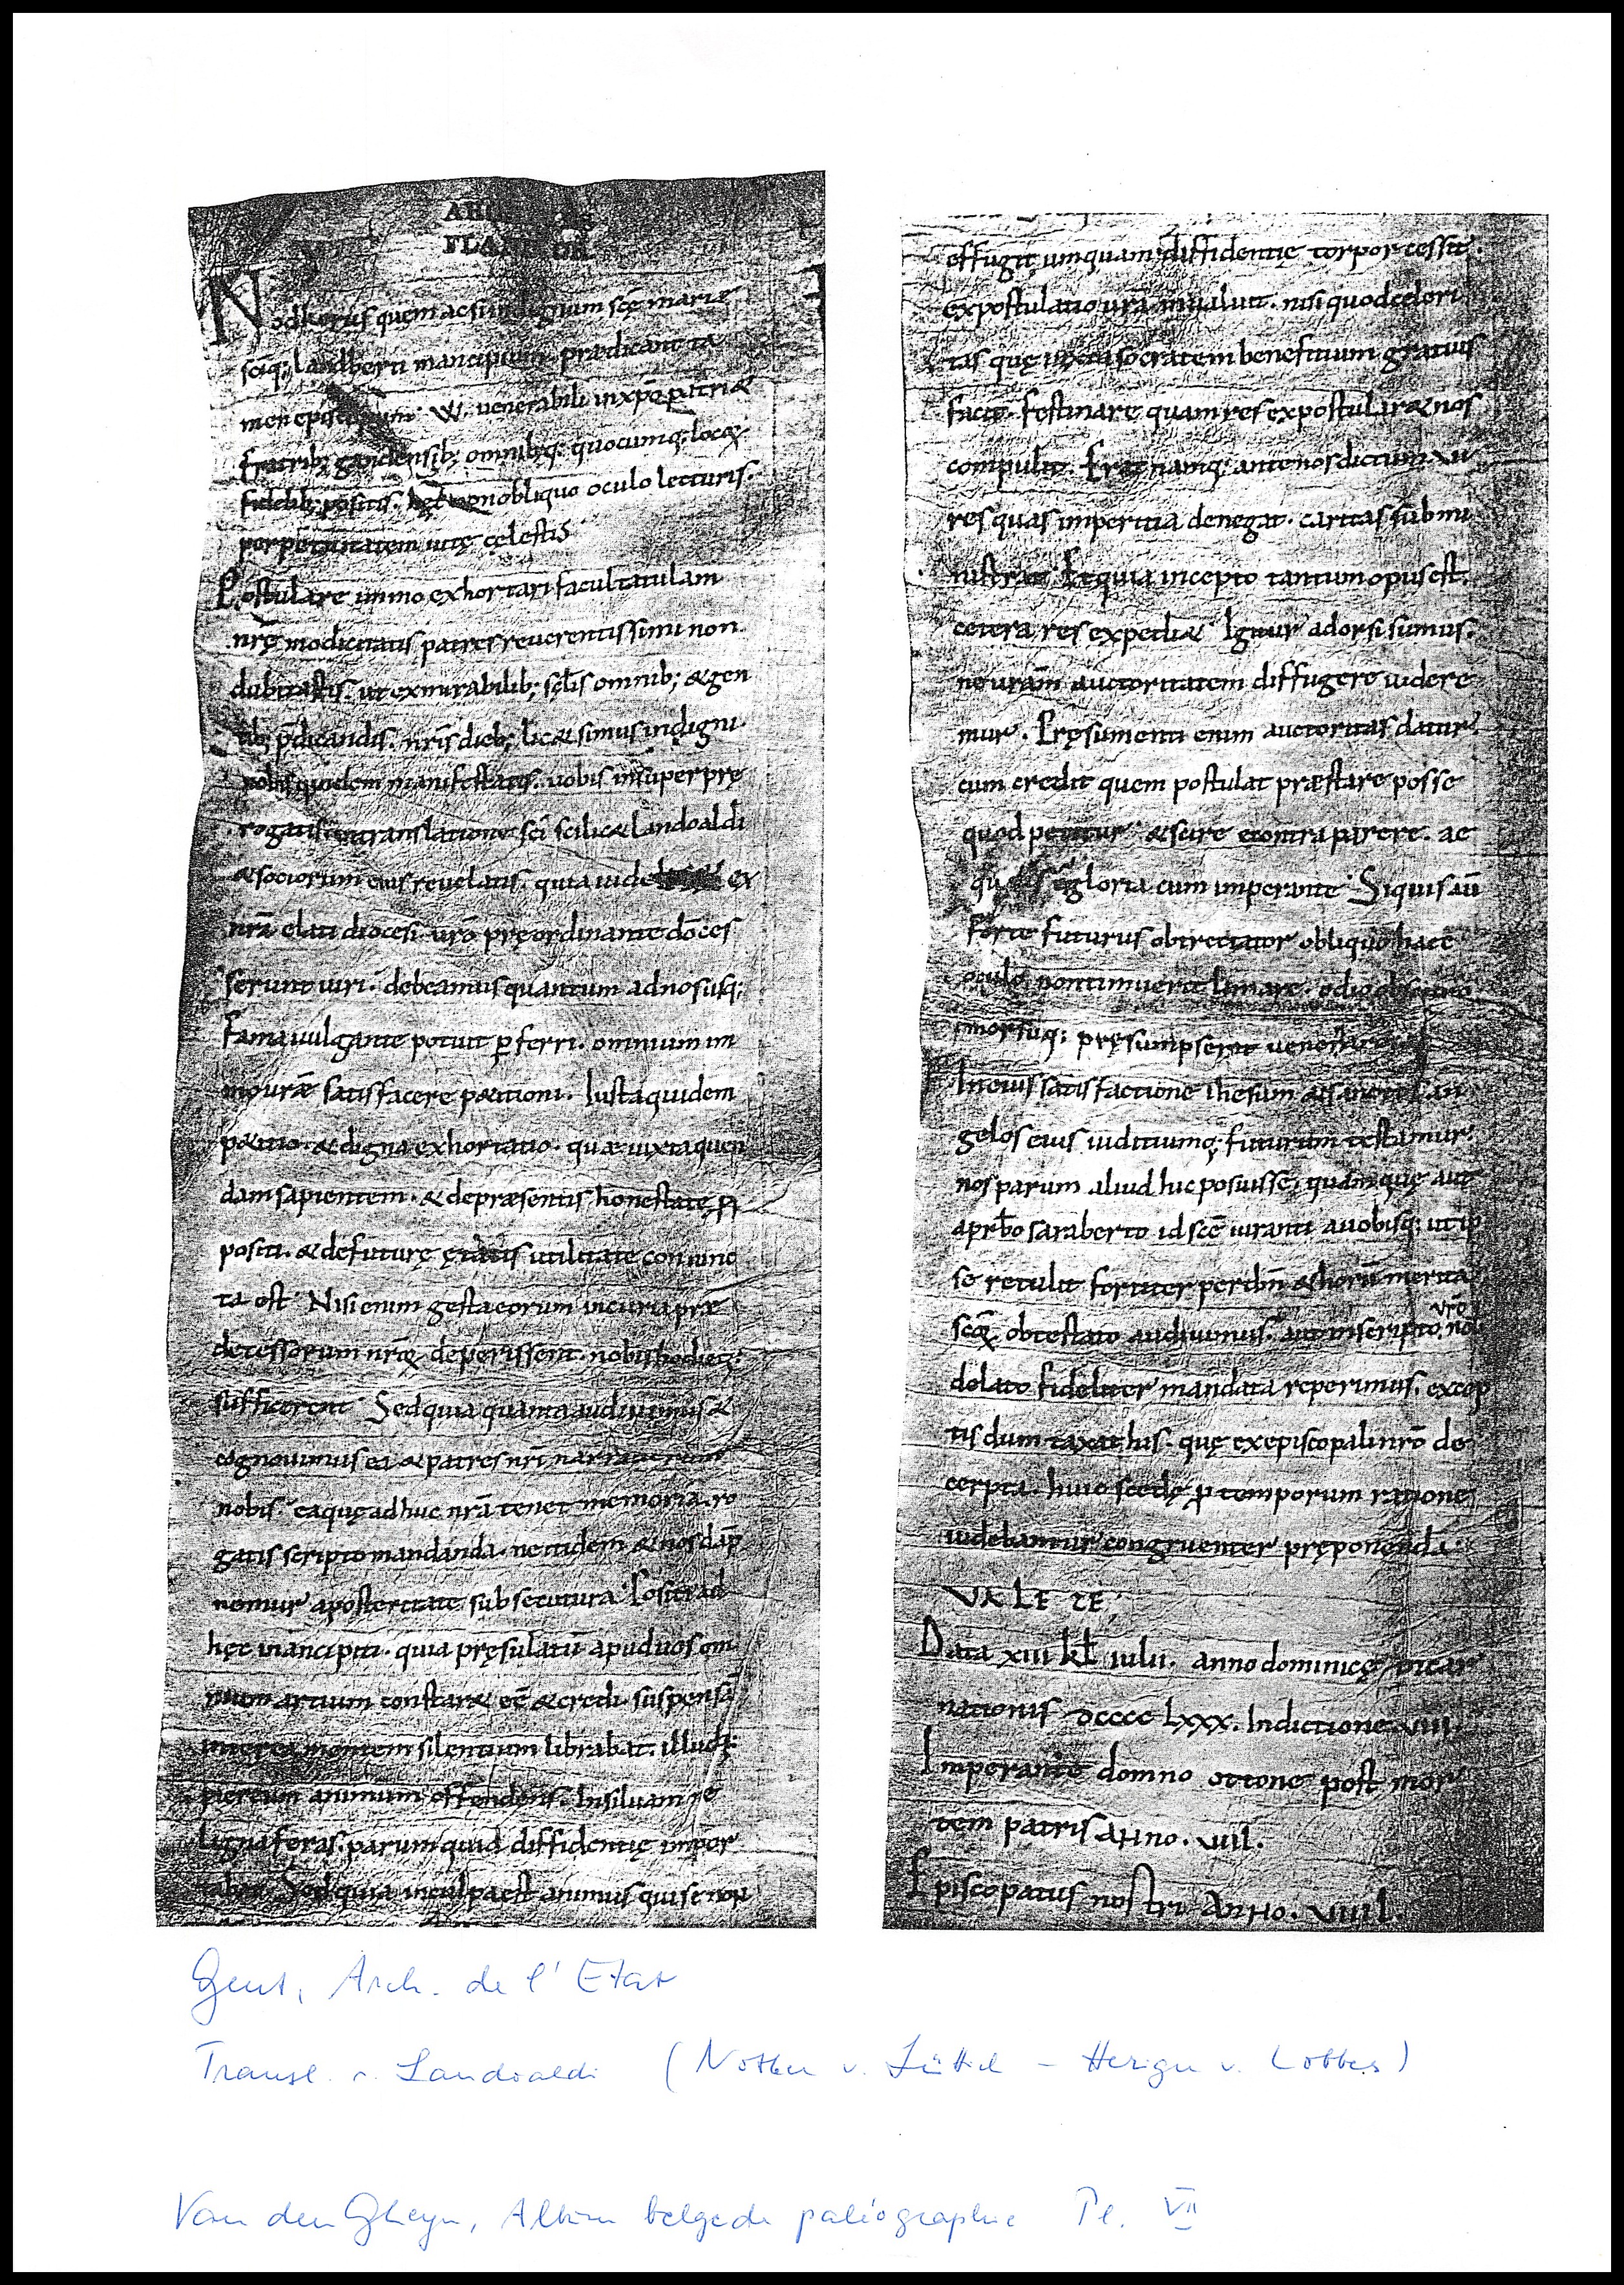 FLAN
Nodkerus quem ac si indignum scę marię
sciq; landberti mancipium. prędicant ta
men episcopum. W. uenerabili in xpo patri &
fratrib; gandensib; omnibq; quocumq; locoꝝ
fidelib; positis. non obliquo oculo lecturis.
perpetuitatem uitę cęlestis
Postulare immo exhortari facultatulam
nrę modicitatis patres reuerentissimi non
dubitastis. ut ex mirabilib; sclis omnib; & gen
tib; p̄dicandis. nris dieb; lic& simus indigni
nobis quidem manifestatis. uobis insuper prę
rogatis. translatione sci scilic& landoaldi
& sociorum eius reuelatis. quia uide ex
nrā elati diocesi. uro pręordinante do ces
serunt uiri. debeamus quantum ad nos usq;
fama uulgante potuit ꝑferri. omnium im
mo uræ satisfacere p&itioni. Iusta quidem
p&itio. & digna exhortatio. quæ iuxta quen
dam sapientem. & de præsentis honestate ꝓ
positi. & de futurę ętatis utilitate coniunc
ta est. Nisi enim gesta eorum incuria præ
decessorum nroꝝ deperissent. nobis hodieq;
sufficerent. Sed quia quanta audiuimus &
cognouimus ea & patres nri narrauerunt
nobis. eaquę adhuc nrā tenet memoria. ro
gatis scripto mandanda. ne itidem & nos dāp
nemur a posteritate subsecutura. Positi ad
hęc in ancipiti. quia pręsulatū apud uos om
nium artium constar& eē & credi. suspensā
interea mentem silentium librabat. illudq;
piercum animum offendens. In siluam ne
ligna feras. parum quid diffidentię impor
tabat. Sed quia inculpa est animus qui se non
effugit umquam. diffidentię torpor cessit.
expostulatio urā inualuit. nisi quod celeri
tas quę iuxta socratem beneficium gratius
facit. festinare quam res expostular& nos
compulit. Erat namq; ante nos dictum. Vi
res quas imperitia denegat. caritas submi
nistrat. Et quia incepto tantum opus est.
cetera res expedi&. Igitur adorsi sumus.
ne urām auctoritatem diffugere uidere
mur. Pręsumenti enim auctoritas datur.
cum credit quem postulat præstare posse
quod petitur. & scire econtra parere. ae
qualis ē gloria cum imperante. Si quis aū
forte futurus obtrectator obliquo haec
oculo non timuerit limare. odio obscuro
morsuq; pręsumpserit uenenare.
In eius satisfactione ihesum & sanctos an
gelos eius iuditiumq; futurum testamur.
nos parum aliud hic posuisse. quam quę aut
a prbo saraberto id scē iuranti a uobisq; ut ip
se retulit fortiter per dm̄ & horū merita
scoꝝ obtestato audiuimus. aut in scripto uro non
dolato fideliter mandata reperimus. excep
tis dum taxat his. quę ex episcopali nro de
cerpta. huic scedę ꝓ temporum ratione
uidebantur congruenter pręponenda.
VALETE;
Data xiii kl iulii. anno dominicę incar
nationis DCCCC LXXX. Indictione. viii.
Imperante domno ottone post mor
tem patris anno. viil.
Episcopatus nostri anno. viiil.
Gent, Arch. de l'Etat
Transl. s. Landoaldi (Notker v. Lüttich – Heriger v. Lobbes)
Van den Gheyn, Album belge de paléographie Pl. VII